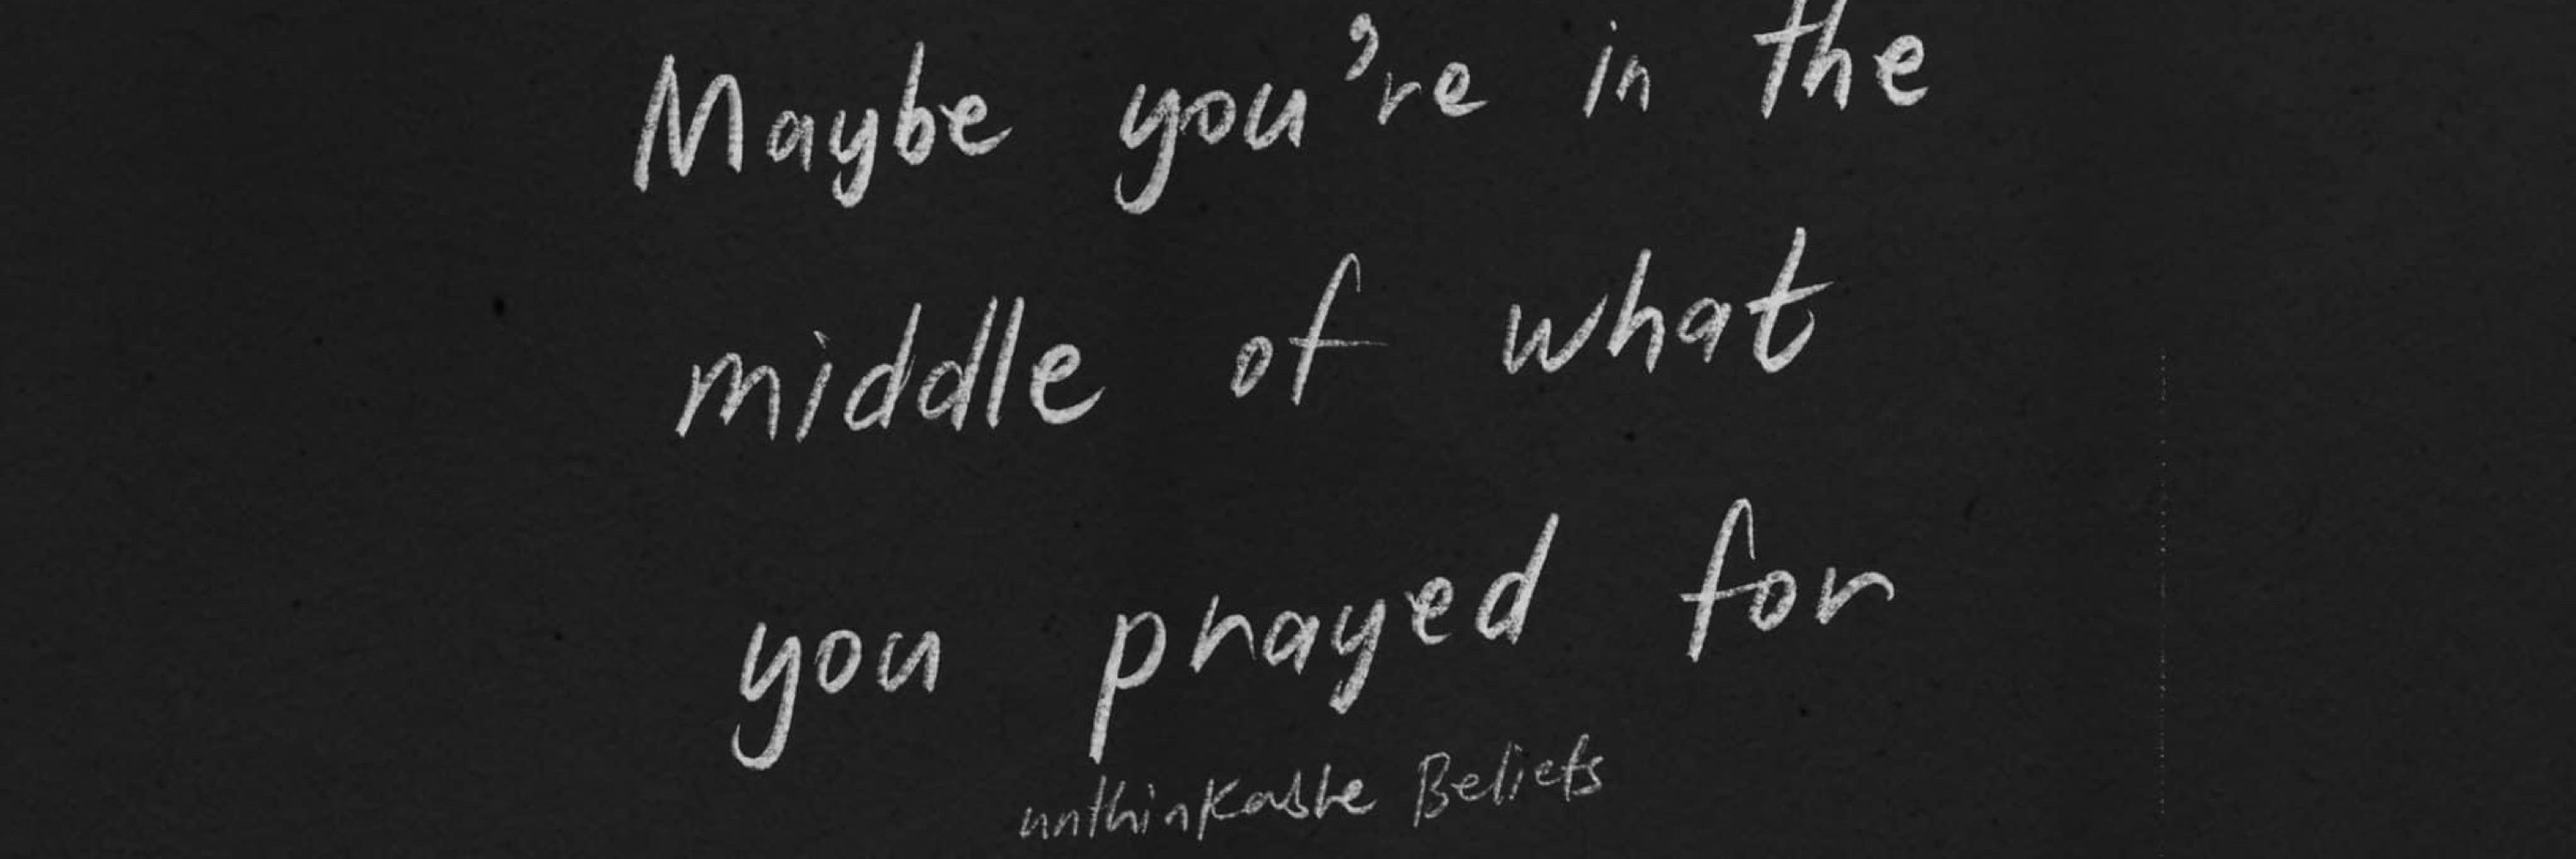 Maybe you're in the
middle of what
you prayed for
unthinkable Beliefs